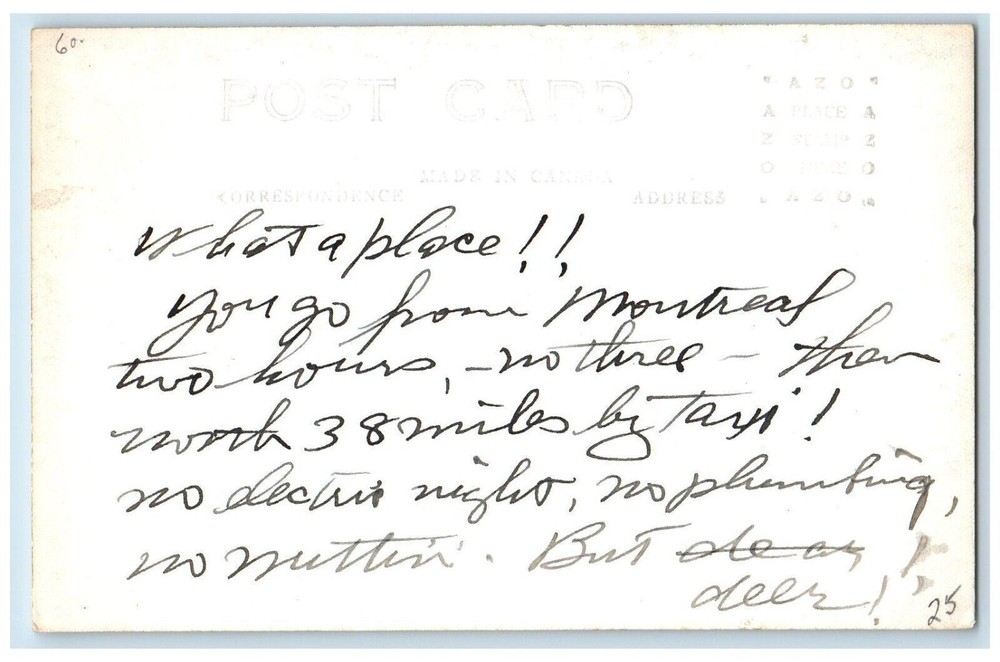 60.
POST CARD
AZO
A PLACE A
Z STAMP Z
O HERE O
AZO
MADE IN CANADA
CORRESPONDENCE ADDRESS
What a place!!
You go from Montreal
two hours, - no three - then
north 38 miles by Taxi!
no electric night, no plumbing,
no nuttin'. But dear!
deer!
25